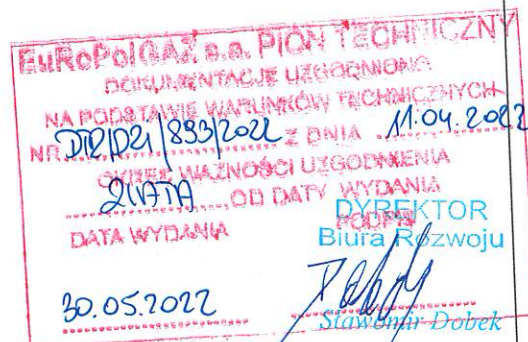 EuRoPolGAZ s.a. PION TECHNICZNY
DOKUMENTACJE UZGODNIONO
NA PODSTAWIE WARUNKÓW TECHNICZNYCH
NR DTR/DZ1/893/2022 Z DNIA 11.04.2022
OKRES WAŻNOŚCI UZGODNIENIA
2 LATA OD DATY WYDANIA
DATA WYDANIA PODPIS
DYREKTOR
Biura Rozwoju
30.05.2022
Sławomir Dobek